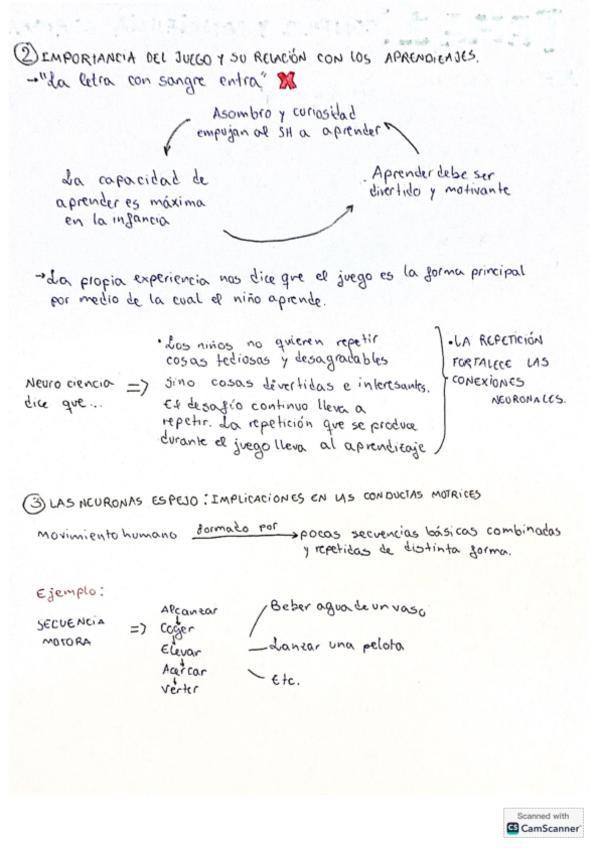 ② IMPORTANCIA DEL JUEGO Y SU RELACIÓN CON LOS APRENDIZAJES.
→"La letra con sangre entra" X
Asombro y curiosidad
empujan al SH a aprender
La capacidad de
aprender es máxima
en la infancia
Aprender debe ser
divertido y motivante
→La propia experiencia nos dice que el juego es la forma principal
por medio de la cual el niño aprende.
Neurociencia
dice que... =>
• Los niños no quieren repetir
cosas tediosas y desagradables
sino cosas divertidas e interesantes.
El desafío continuo lleva a
repetir. La repetición que se produce
durante el juego lleva al aprendizaje
• LA REPETICIÓN
FORTALECE LAS
CONEXIONES
NEURONALES.
③ LAS NEURONAS ESPEJO: IMPLICACIONES EN LAS CONDUCTAS MOTRICES
Movimiento humano formado por → pocas secuencias básicas combinadas
y repetidas de distinta forma.
Ejemplo:
SECUENCIA
MOTORA =>
Alcanzar
Coger
Elevar
Acercar
Verter
Beber agua de un vaso
Lanzar una pelota
Etc.
Scanned with
CS CamScanner